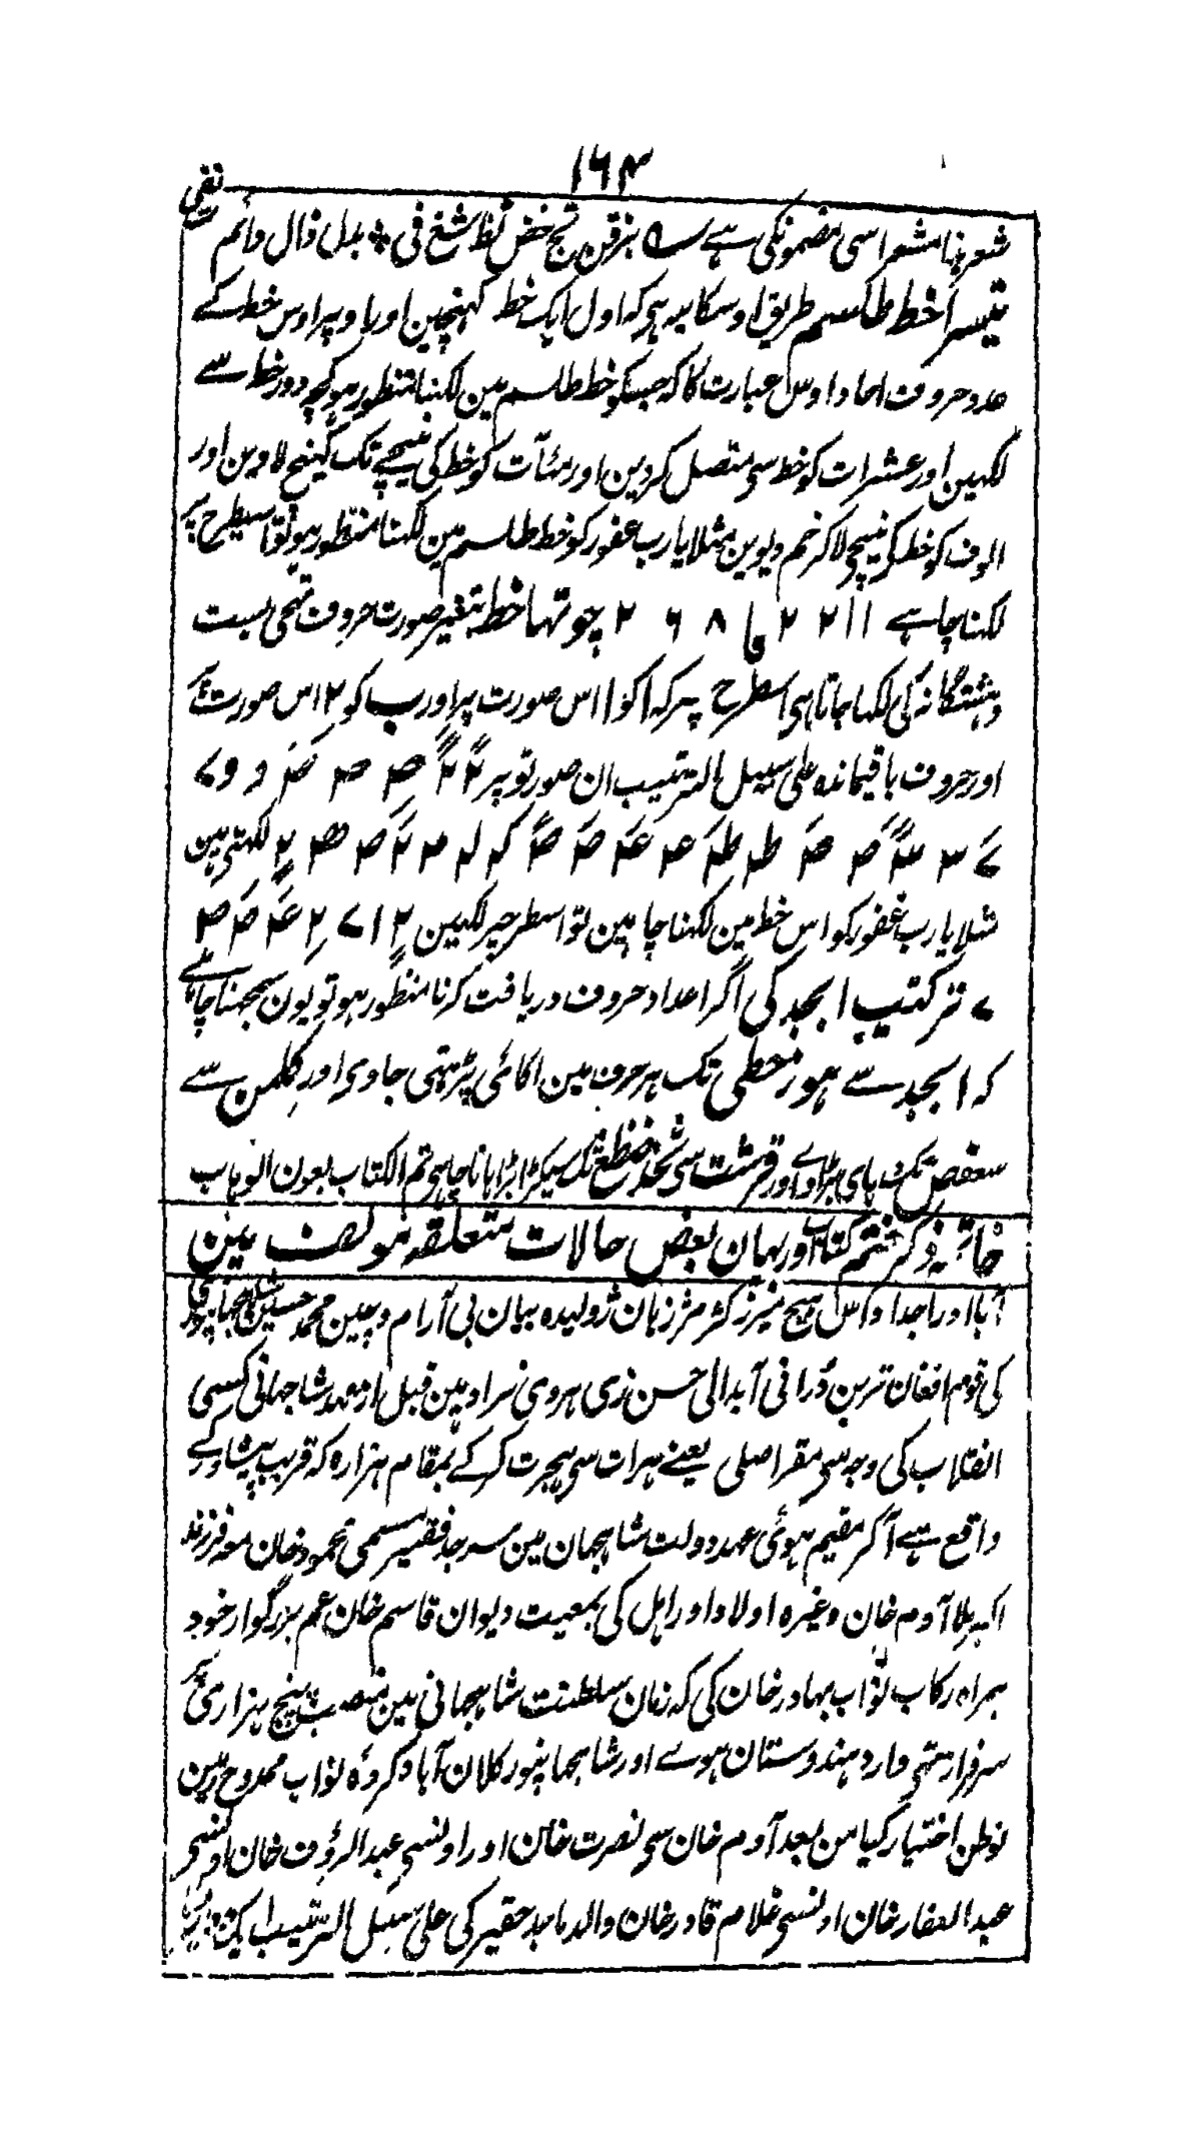 ۱۶۴
شعر ہذا مشعر اسی مضمونکی ہے بزقن تج خض لظ شغ فی بدل ذال دائم نفی
تیسرا خط طلسم طریق اوسکا یہ ہی کہ اول ایک خط کہنچین اور اوپر اوس خط کے
عدد حروف احاد اوس عبارت کا کہ جسکو خط طلسم مین لکہنا منظور ہو کچہ دور خط سے
لکہین اور عشرات کو خط سی متصل کردین اور مئآت کو خط کی نیچے تک کہینچ لاوین اور
الوف کو خط کی نیچی لاکر خم دیوین مثلا یارب غفور کو خط طلسم مین لکہنا منظور ہو تو اسیطرح پر
لکہنا چاہے ۱۱ ۲ ۲ ۲ ۸ ۶ ۲ چوتھا خط بتغیر صورت حروف تہجی بست
وہشتگانہ کی لکہا جاتا ہی اسطرح پر کہ ا کو ۱ اس صورت پر اور ب کو ۲ اس صورت پر
اور حروف باقیماندہ علی سبیل الترتیب ان صورتو پر
لکہتی ہین
مثلا یارب غفور کو اس خط مین لکہنا چاہین تو اسطرحپر لکہین
ترکتیب ابجد کی اگر اعداد حروف دریافت کرنا منظور ہو تو یون سمجہنا چاہئے
کہ ابجد سے ہوز حطی تک ہر حرف مین اکائی بڑہتی جاوی اور کلمن سے
سعفص تک دہای بڑاوے اور قرشت سی ثخذ ضظغ تک سیکڑا بڑہانا چاہی تم الکتاب بعون الوہاب
خاتمہ ذکر ختم کتاب اور بیان بعض حالات متعلقہ مولف مین
آبا اور اجداد اس ہیچ میرز کثر مثر زبان ژولیدہ بیان بی آرام وچین محمد حسین شاہجہانپوری
کی قوم افغان ترین دُرانی آبدالی حسن زی ہروی نژاد ہین قبل از عہد شاہجہانی کسی
انقلاب کی وجہ سی مقر اصلی یعنے ہرات سی ہجرت کر کے بمقام ہزارہ کہ قریب پیشاور کے
واقع ہے آکر مقیم ہوئی عہد دولت شاہجہان مین سر جد فقیر مسمی محمود خان مع فرزند
اکبر ملا آدم خان وغیرہ اولاد اور اہل کی بمعیت دیوان قاسم خان عم بزرگوار خود
ہمراہ رکاب نوّاب بہادر خان کی کہ زمان سلطنت شاہجہانی مین منصب پنج ہزاری پر
سرفراز تہی وارد ہندوستان ہوے اور شاہجہانپور کلان آباد کردہ نواب ممدوح مین
توطن اختیار کیا من بعد آدم خان سی نصرت خان اور اونسی عبد الرؤف خان اونسی
عبد الغفار خان اونسی غلام قادر خان والد ماجد حقیر کی علی سبیل الترتیب ایک